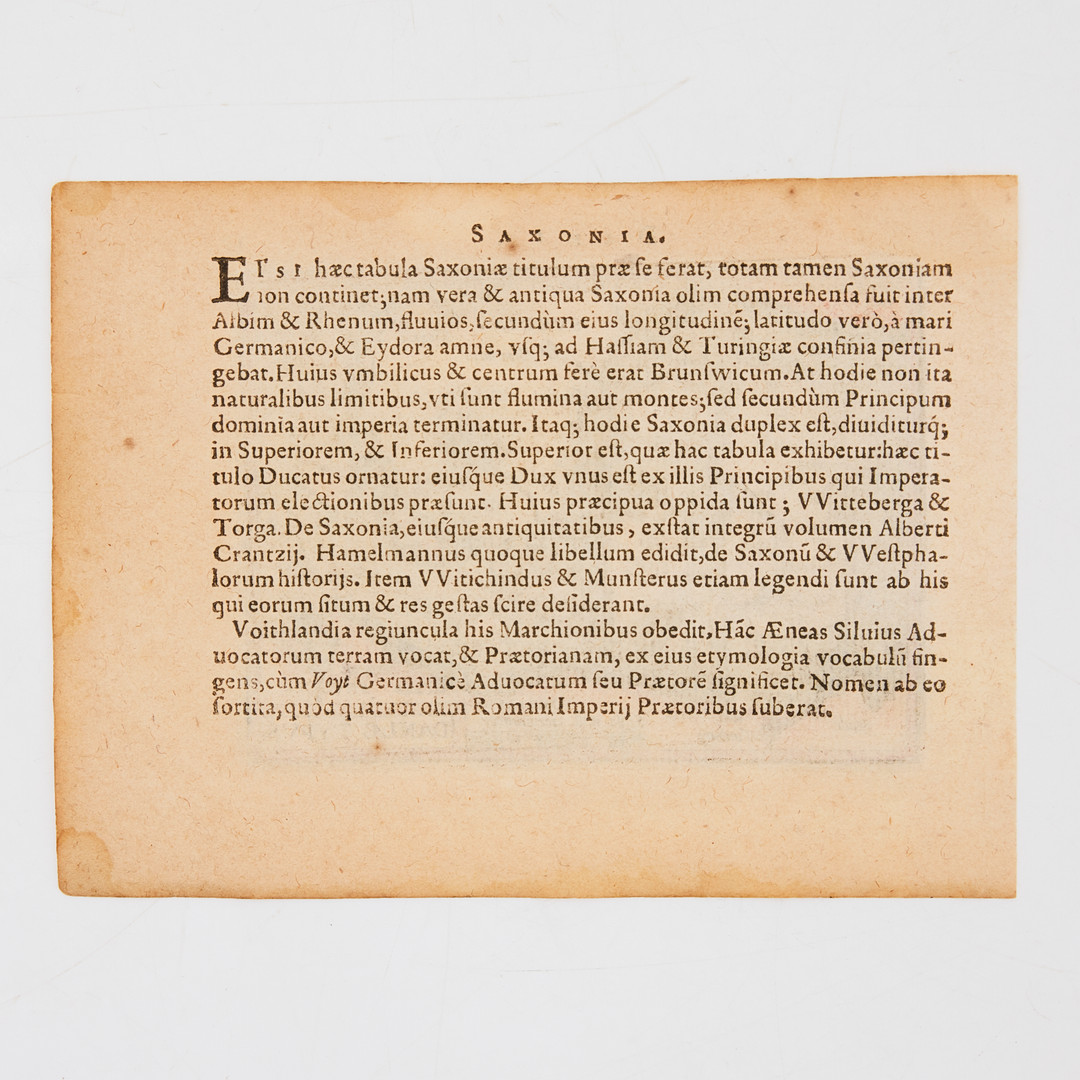 SAXONIA.
ETSI hæc tabula Saxoniæ titulum præ se ferat, totam tamen Saxoniam
non continet; nam vera & antiqua Saxonia olim comprehenſa fuit inter
Albim & Rhenum, fluuios, ſecundùm eius longitudinē; latitudo verò, à mari
Germanico, & Eydora amne, vſq; ad Haſſiam & Turingiæ confinia pertin-
gebat. Huius vmbilicus & centrum ferè erat Brunſwicum. At hodie non ita
naturalibus limitibus, vti ſunt flumina aut montes; ſed ſecundùm Principum
dominia aut imperia terminatur. Itaq; hodie Saxonia duplex eſt, diuiditurq́;
in Superiorem, & Inferiorem. Superior eſt, quæ hac tabula exhibetur: hæc ti-
tulo Ducatus ornatur: eiuſq́ue Dux vnus eſt ex illis Principibus qui Impera-
torum electionibus præſunt. Huius præcipua oppida ſunt; VVitteberga &
Torga. De Saxonia, eiuſq́ue antiquitatibus, exſtat integrū volumen Alberti
Crantzij. Hamelmannus quoque libellum edidit, de Saxonū & VVeſtpha-
lorum hiſtorijs. Item VVitichindus & Munſterus etiam legendi ſunt ab his
qui eorum ſitum & res geſtas ſcire deſiderant.
Voithlandia regiuncula his Marchionibus obedit, Hāc Æneas Siluius Ad-
uocatorum terram vocat, & Prætorianam, ex eius etymologia vocabulū fin-
gens, cùm Voyt Germanicè Aduocatum ſeu Prætorē ſignificet. Nomen ab eo
ſortita, quòd quatuor olim Romani Imperij Prætoribus ſuberat.